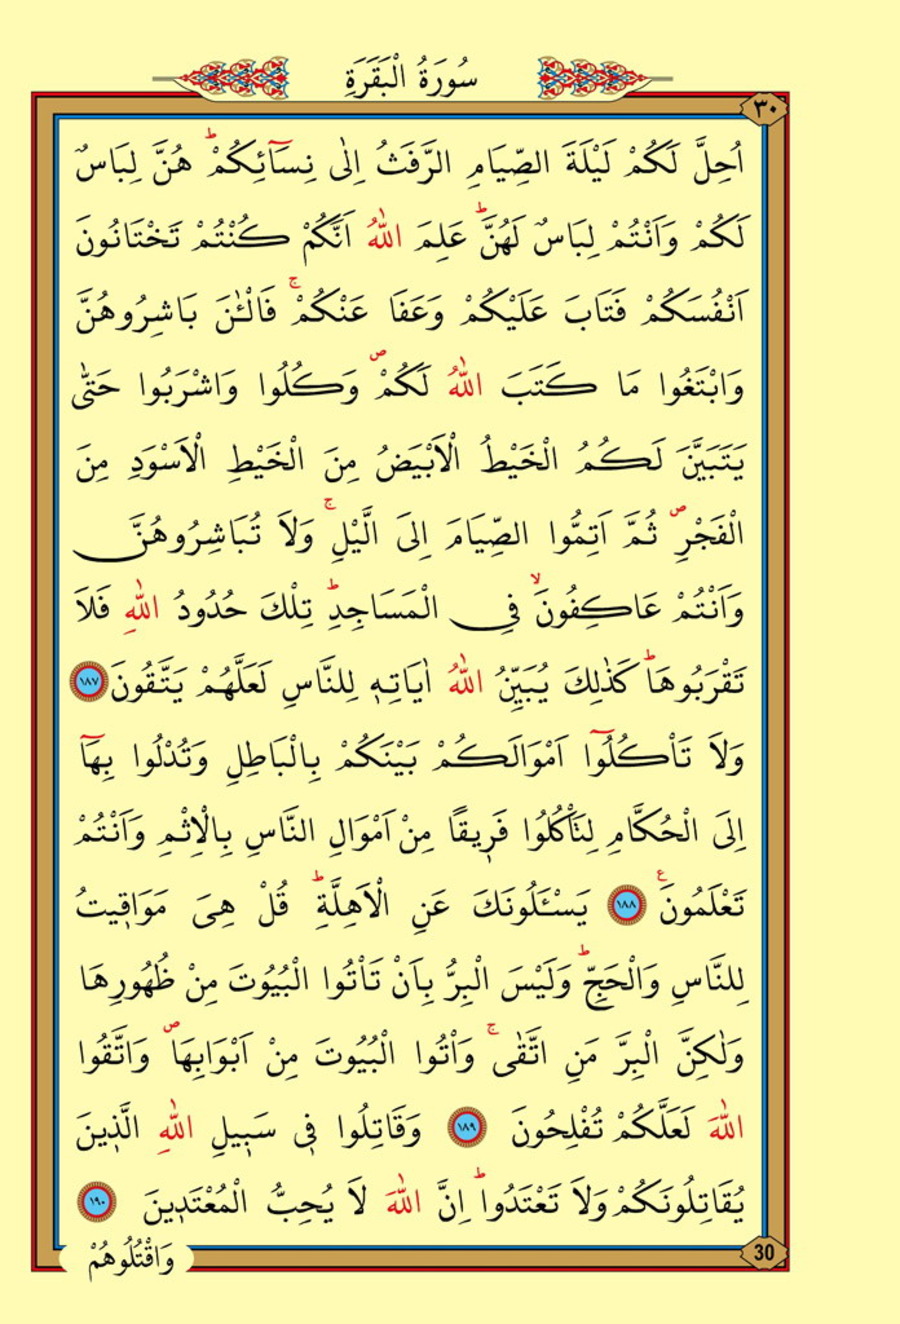 سُورَةُ الْبَقَرَةِ
٣٠
اُحِلَّ لَكُمْ لَيْلَةَ الصِّيَامِ الرَّفَثُ اِلٰى نِسَٓائِكُمْۜ هُنَّ لِبَاسٌ
لَكُمْ وَاَنْتُمْ لِبَاسٌ لَهُنَّۜ عَلِمَ اللّٰهُ اَنَّكُمْ كُنْتُمْ تَخْتَانُونَ
اَنْفُسَكُمْ فَتَابَ عَلَيْكُمْ وَعَفَا عَنْكُمْۚ فَالْـٰٔنَ بَاشِرُوهُنَّ
وَابْتَغُوا مَا كَتَبَ اللّٰهُ لَكُمْۖ وَكُلُوا وَاشْرَبُوا حَتّٰى
يَتَبَيَّنَ لَكُمُ الْخَيْطُ الْاَبْيَضُ مِنَ الْخَيْطِ الْاَسْوَدِ مِنَ
الْفَجْرِۖ ثُمَّ اَتِمُّوا الصِّيَامَ اِلَى الَّيْلِۚ وَلَا تُبَاشِرُوهُنَّ
وَاَنْتُمْ عَاكِفُونَۙ فِي الْمَسَاجِدِۜ تِلْكَ حُدُودُ اللّٰهِ فَلَا
تَقْرَبُوهَاۜ كَذٰلِكَ يُبَيِّنُ اللّٰهُ اٰيَاتِه۪ لِلنَّاسِ لَعَلَّهُمْ يَتَّقُونَ ١٨٧
وَلَا تَأْكُلُٓوا اَمْوَالَكُمْ بَيْنَكُمْ بِالْبَاطِلِ وَتُدْلُوا بِهَٓا
اِلَى الْحُكَّامِ لِتَأْكُلُوا فَر۪يقًا مِنْ اَمْوَالِ النَّاسِ بِالْاِثْمِ وَاَنْتُمْ
تَعْلَمُونَ۟ ١٨٨ يَسْـَٔلُونَكَ عَنِ الْاَهِلَّةِۜ قُلْ هِيَ مَوَاق۪يتُ
لِلنَّاسِ وَالْحَجِّۜ وَلَيْسَ الْبِرُّ بِاَنْ تَأْتُوا الْبُيُوتَ مِنْ ظُهُورِهَا
وَلٰكِنَّ الْبِرَّ مَنِ اتَّقٰىۚ وَأْتُوا الْبُيُوتَ مِنْ اَبْوَابِهَاۖ وَاتَّقُوا
اللّٰهَ لَعَلَّكُمْ تُفْلِحُونَ ١٨٩ وَقَاتِلُوا ف۪ي سَب۪يلِ اللّٰهِ الَّذ۪ينَ
يُقَاتِلُونَكُمْ وَلَا تَعْتَدُواۜ اِنَّ اللّٰهَ لَا يُحِبُّ الْمُعْتَد۪ينَ ١٩٠
وَاقْتُلُوهُمْ
30